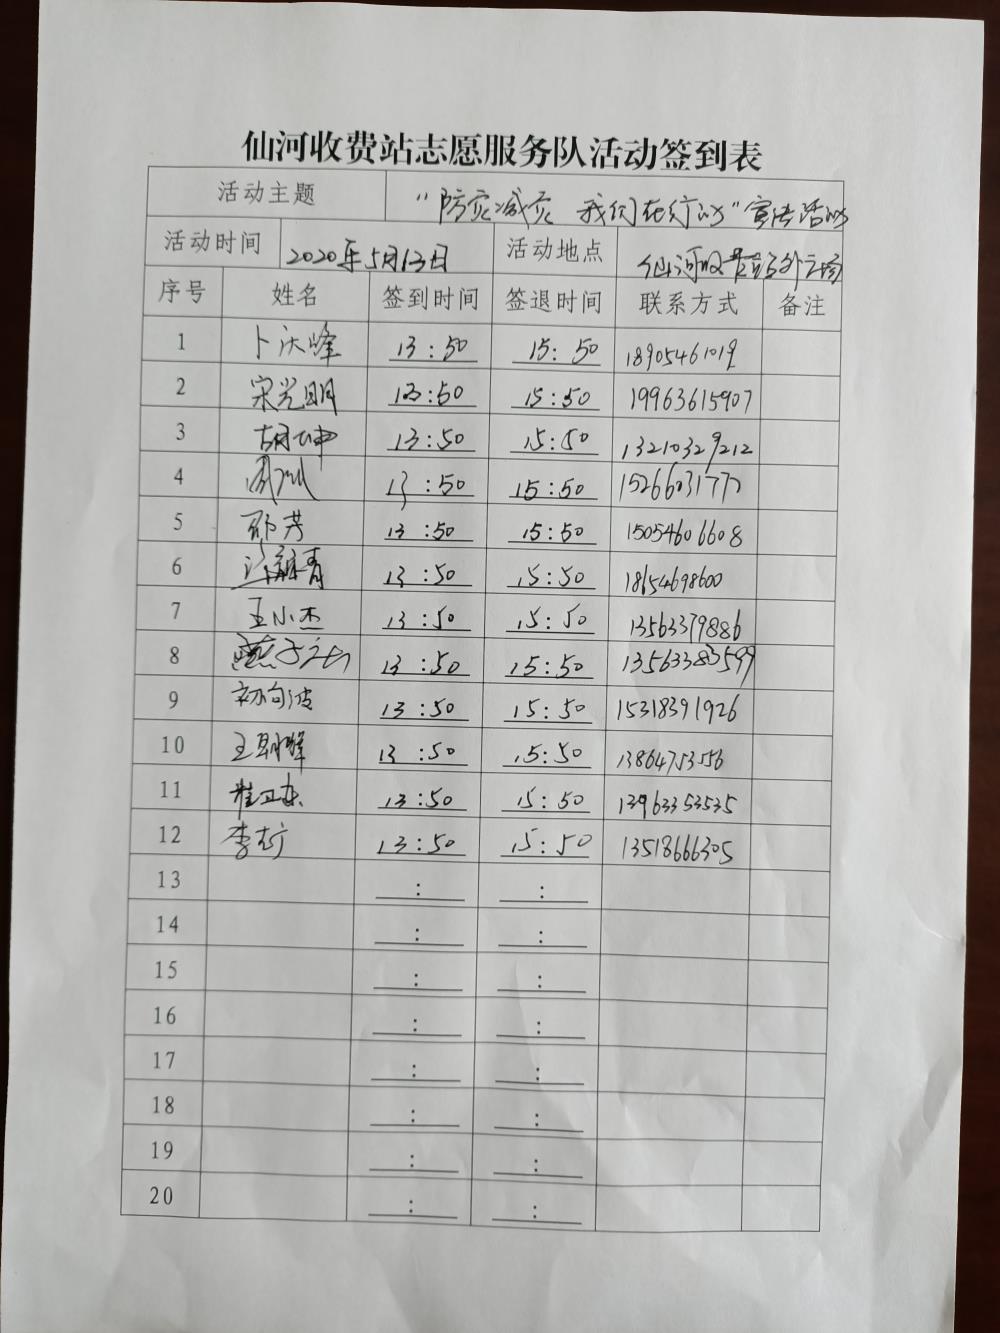 仙河收费站志愿服务队活动签到表
活动主题 "防灾减灾 我们在行动"宣传活动
活动时间 2020年5月13日 活动地点 仙河收费站外广场
序号 姓名 签到时间 签退时间 联系方式 备注
1 卜庆峰 13:50 15:50 18905461019
2 宋光明 13:50 15:50 19963615907
3 胡坤 13:50 15:50 13210329212
4 13:50 15:50 15266031777
5 邵芳 13:50 15:50 15054606608
6 13:50 15:50 18654698600
7 王小杰 13:50 15:50 13563379886
8 13:50 15:50
9 13:50 15:50 15318391926
10 王 峰 13:50 15:50 13864753556
11 崔卫东 13:50 15:50 13963353535
12 李 13:50 15:50 13518666305
13 : :
14 : :
15 : :
16 : :
17 : :
18 : :
19 : :
20 : :